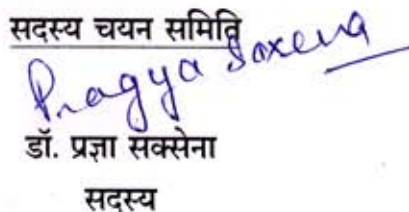 सदस्य चयन समिति
Pragya Saxena
डॉ. प्रज्ञा सक्सेना
सदस्य